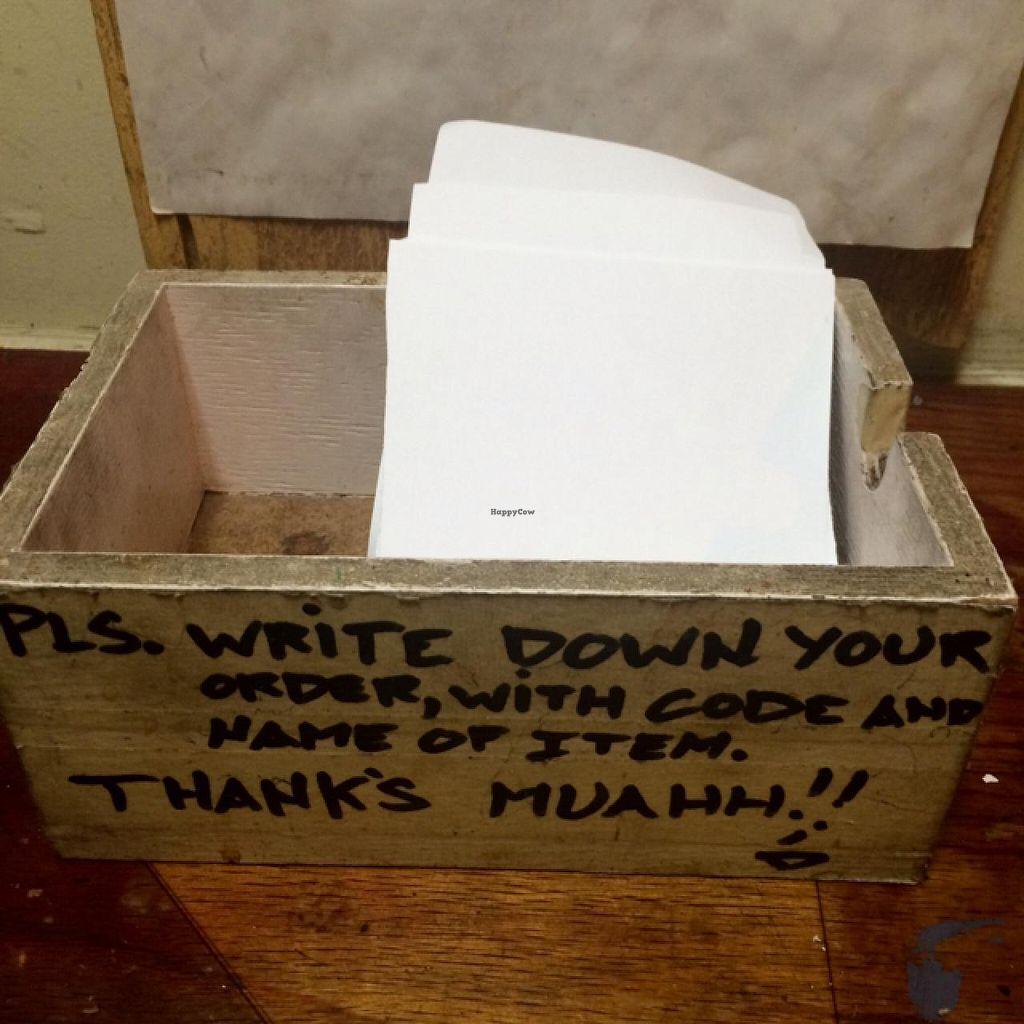 HappyCow
PLS. WRITE DOWN YOUR
ORDER, WITH CODE AND
NAME OF ITEM.
THANK'S MUAHH.!!